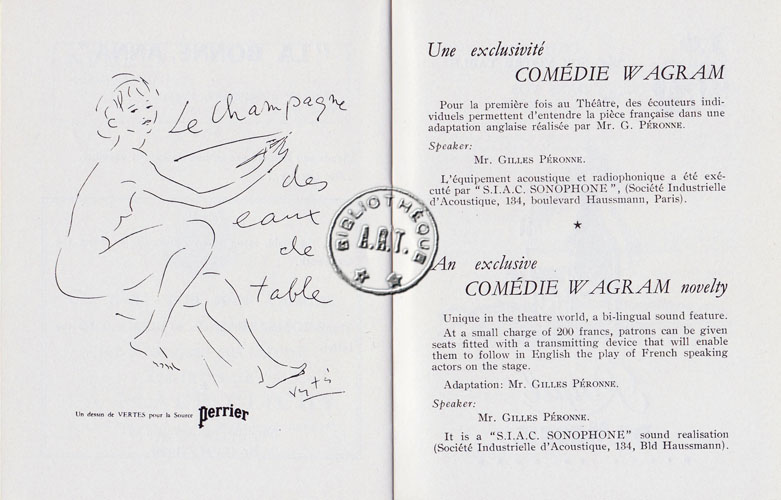 Le Champagne
des
eaux
de
table
Vertès
Un dessin de VERTES pour la Source Perrier
BIBLIOTHÈQUE
A.R.T.
Une exclusivité
COMÉDIE WAGRAM
Pour la première fois au Théâtre, des écouteurs indi-
viduels permettent d'entendre la pièce française dans une
adaptation anglaise réalisée par Mr. G. PÉRONNE.
Speaker:
Mr. GILLES PÉRONNE.
L'équipement acoustique et radiophonique a été exé-
cuté par "S.I.A.C. SONOPHONE", (Société Industrielle
d'Acoustique, 134, boulevard Haussmann, Paris).
An exclusive
COMÉDIE WAGRAM novelty
Unique in the theatre world, a bi-lingual sound feature.
At a small charge of 200 francs, patrons can be given
seats fitted with a transmitting device that will enable
them to follow in English the play of French speaking
actors on the stage.
Adaptation: Mr. GILLES PÉRONNE.
Speaker:
Mr. GILLES PÉRONNE.
It is a "S.I.A.C. SONOPHONE" sound realisation
(Société Industrielle d'Acoustique, 134, Bld Haussmann).